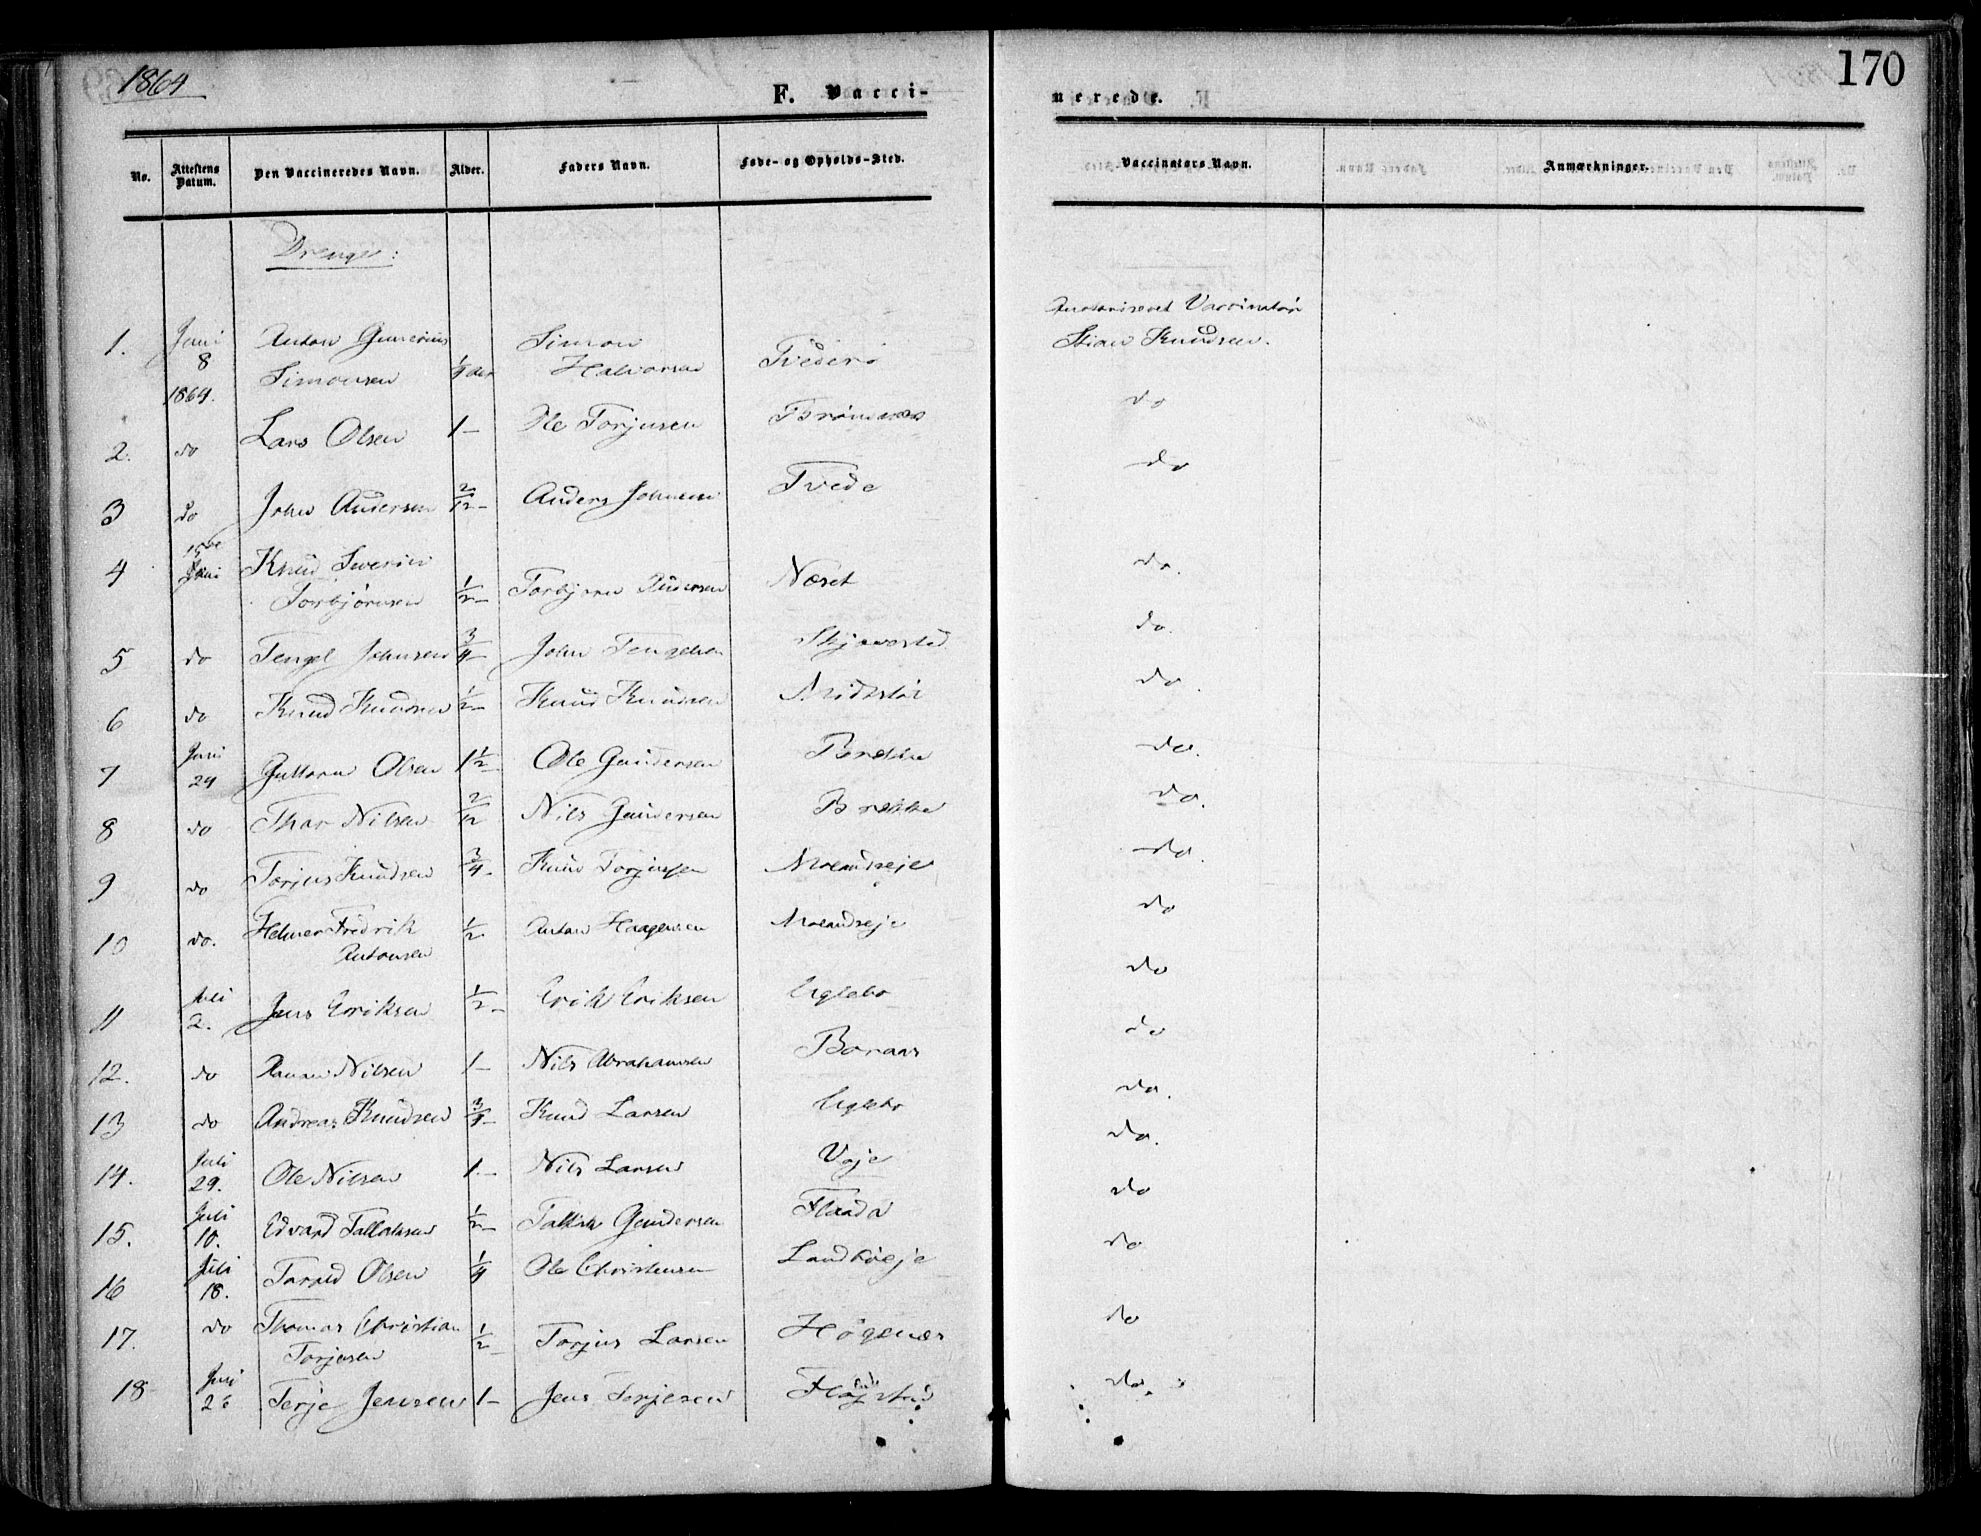 1864
170
F. Vacci-
nerede.
No.
Attestens Datum.
Den Vaccineredes Navn.
Alder.
Faders Navn.
Føde- og Opholds-Sted.
Vaccinators Navn.
Anmærkninger.
Drenge:
Vaccinatør
1. Juni 8 1864. Anton Simonsen Simon Halvorsen Knudsen.
2. do Lars Olsen 1- Ole Torjusen do
3 do John Andersen 2/12- Anders Johnsen Tvede do
4 Juni Knud Severin Torbjørnsen 1/2- Torbjørn Andersen Næset do.
5 do Tengel Johnsen 3/4- John Tengelsen do.
6 do Knud Knudsen 1/2- Knud Knudsen do.
7 Juni 24 Guttorm Olsen 1 1/2- Ole Gundersen Brekke do.
8 do Nilsen 2/12 Nils Gundersen Brekke do.
9 do Torjus Knudsen 3/4- Knud Torjusen Moландseje do.
10 do. Fredrik Antonsen 1/2 Anton Haagensen do
11 Juli 2. Jens Eriksen 1/2- Erik Eriksen Uglebo do
12. do Nilsen 1- Nils Abrahamsen Boraas do
13 do Andreas Knudsen 3/4- Knud Larsen Uglebo do.
14. Juli 29. Ole Nilsen 1.- Nils Larsen Voje do.
15. Juli 10. Edvard Tallaksen 1/2- Gundersen do
16 Juli 18. Tarald Olsen 1/4 Ole Christensen do
17. do Thomas Christian Torjusen 1/2- Torjus Larsen do
18 26 Terje Jensen 1- Jens Terjesen do.